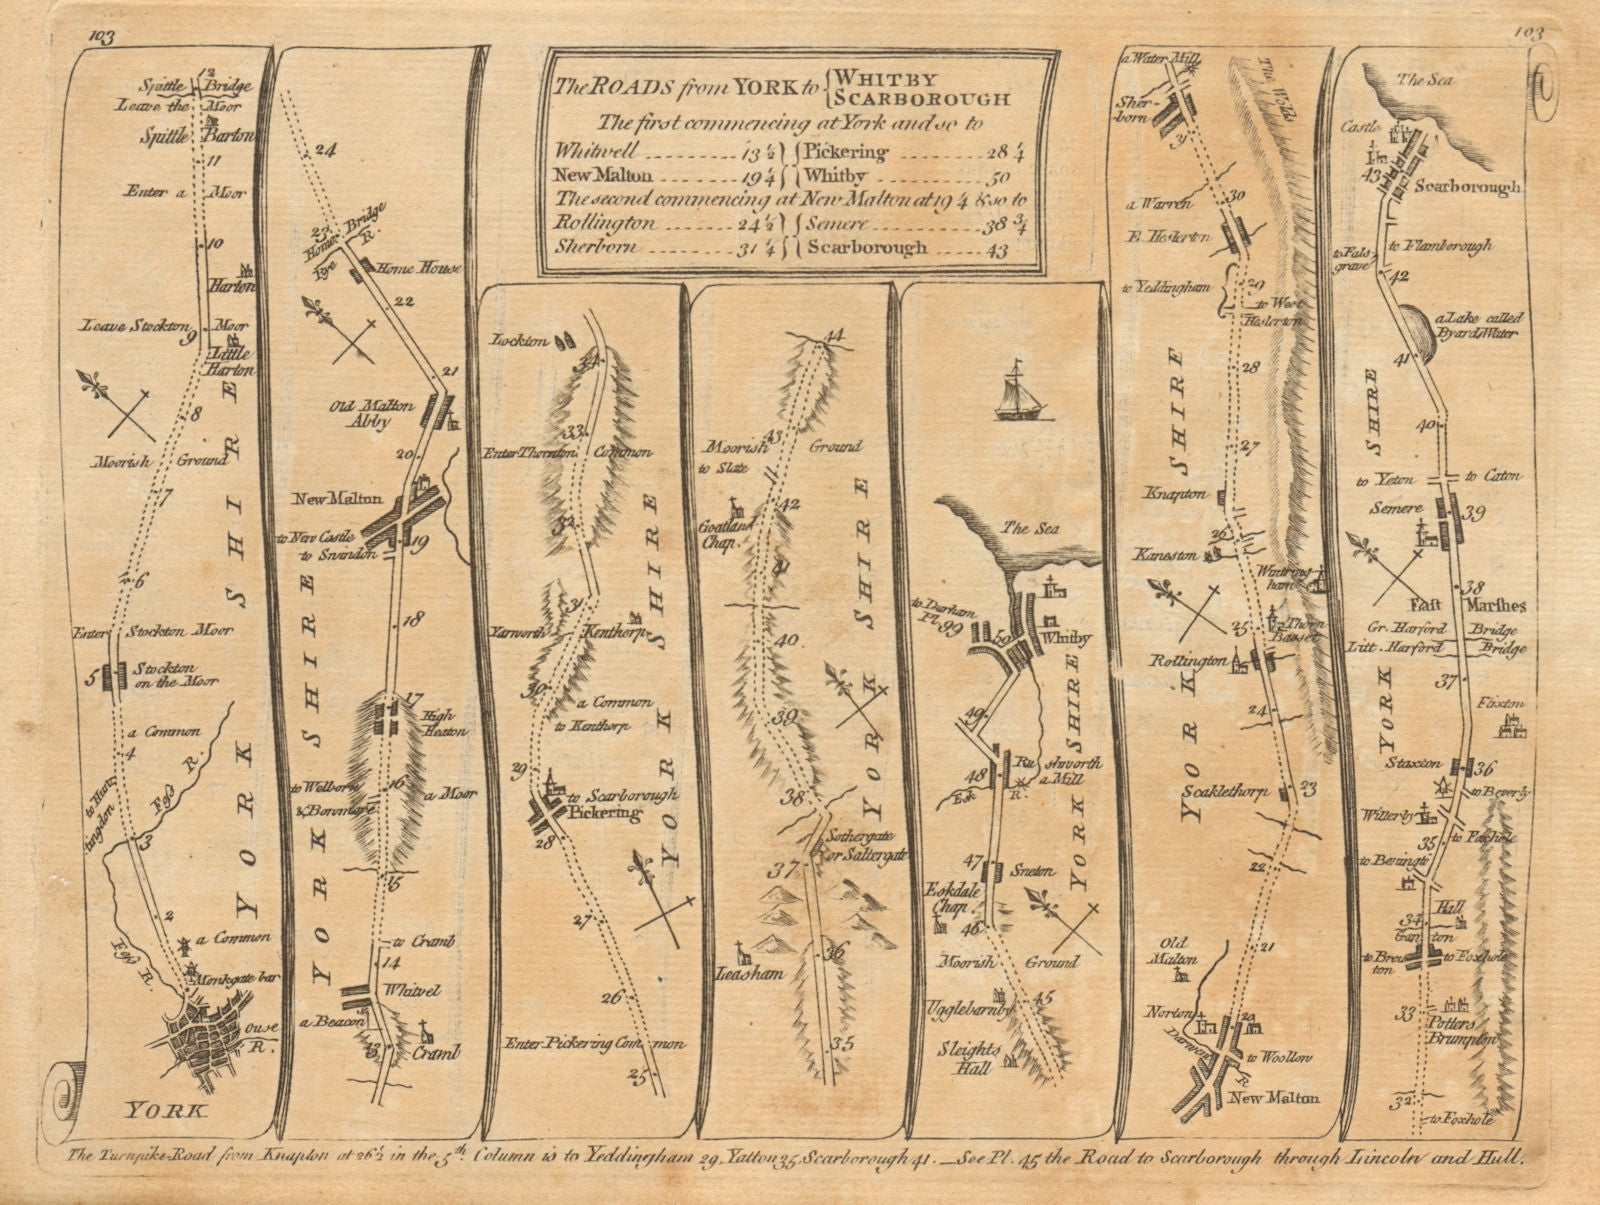 103
103
The ROADS from YORK to { WHITBY
SCARBOROUGH
The first commencing at York and so to
Whitwell 13½ } { Pickering 28¼
New Malton 19¼ } { Whitby 50
The second commencing at New Malton at 19¼ & so to
Rollington 24½ } { Semere 38¾
Sherborn 31¼ } { Scarborough 43
12
Spittle Bridge
Leave the Moor
Spittle Barton
11
Enter a Moor
10
Harton
Leave Stockton Moor
9
Little
Harton
8
Moorish Ground
7
6
Enter Stockton Moor
5
Stockton
on the Moor
a Common
4
to Hun
tingdon
Foss R.
3
2
a Common
Foss R.
Monkgate bar
Ouse
R.
YORK
YORK SHIRE
24
23
Bridge
R.
Rye
Home House
22
21
Old Malton
Abby
20
New Malton
to New Castle
19
to Swindon
18
17
High
Heaton
16
to Welborn
a Moor
15
to Cramb
14
Whitvel
a Beacon
13
Cramb
YORK SHIRE
Lockton
34
33
Enter Thornton Common
32
31
Yarnworth
Kenthorp
30
a Common
to Kenthorp
29
to Scarborough
Pickering
28
27
26
Enter Pickering Common
25
YORK SHIRE
44
43
Moorish Ground
to Slate
42
Goatland
Chap.
41
40
39
38
Sothergate
or Saltergate
37
36
Leasham
35
YORK SHIRE
The Sea
to Durham
Pl. 99
50
Whitby
49
Rushworth
48
a Mill
Esk R.
47
Sneton
Eskdale
Chap.
46
Moorish Ground
45
Ugglebarnby
Sleights
Hall
YORK SHIRE
a Water Mill
Sher-
born
31
The Wolds
30
a Warren
E. Heslerton
to Yeddingham
29
to West
Heslerton
28
27
Knapton
26
Kaneston
Wintring
ham
25
Thorn
Basset
Rollington
24
23
Scaklethorp
22
21
Old
Malton
Norton
20
Darwent R.
to Woollow
New Malton
YORK SHIRE
The Sea
Castle
43
Scarborough
to Flamborough
to Fals
grave
42
a Lake called
Byard Water
41
40
to Yeton to Caton
Semere
39
38
East Marshes
Gr. Harford Bridge
Litt. Harford Bridge
37
Flixton
Staxton
36
to Beverly
Willerby
35
to Foxhole
to Benington
Hall
34
Ganton
to Brou
ton
to Foxhole
33
Potters
Brumpton
32
to Foxhole
YORK SHIRE
The Turnpike-Road from Knapton at 26½ in the 5th. Column is to Yeddingham 29. Yatton 35. Scarborough 41. — See Pl. 45 the Road to Scarborough through Lincoln and Hull.